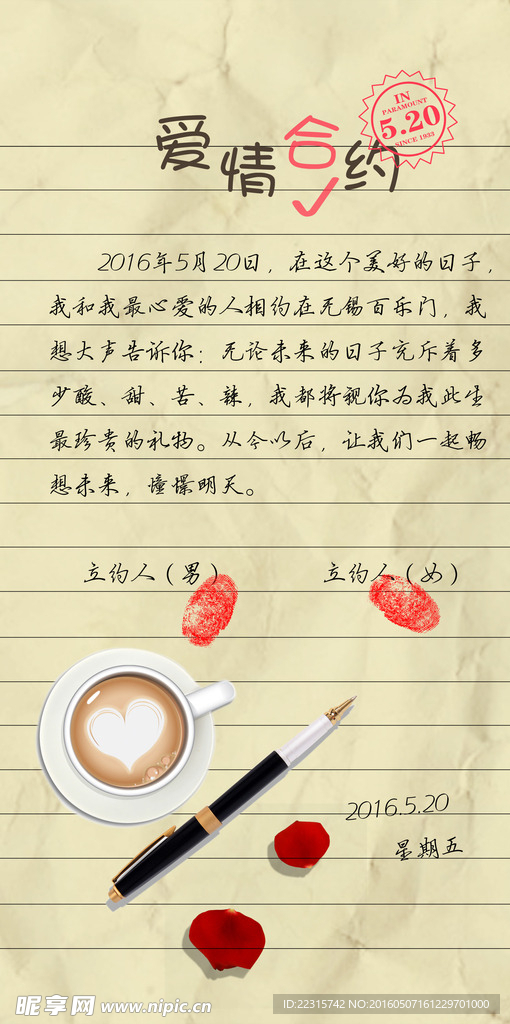 爱情合约
IN
PARAMOUNT
5.20
SINCE 1933
2016年5月20日，在这个美好的日子，
我和我最心爱的人相约在无锡百乐门，我
想大声告诉你：无论未来的日子充斥着多
少酸、甜、苦、辣，我都将视你为我此生
最珍贵的礼物。从今以后，让我们一起畅
想未来，憧憬明天。
立约人（男） 立约人（女）
2016.5.20
星期五
昵享网 www.nipic.cn
ID:22315742 NO:20160507161229701000